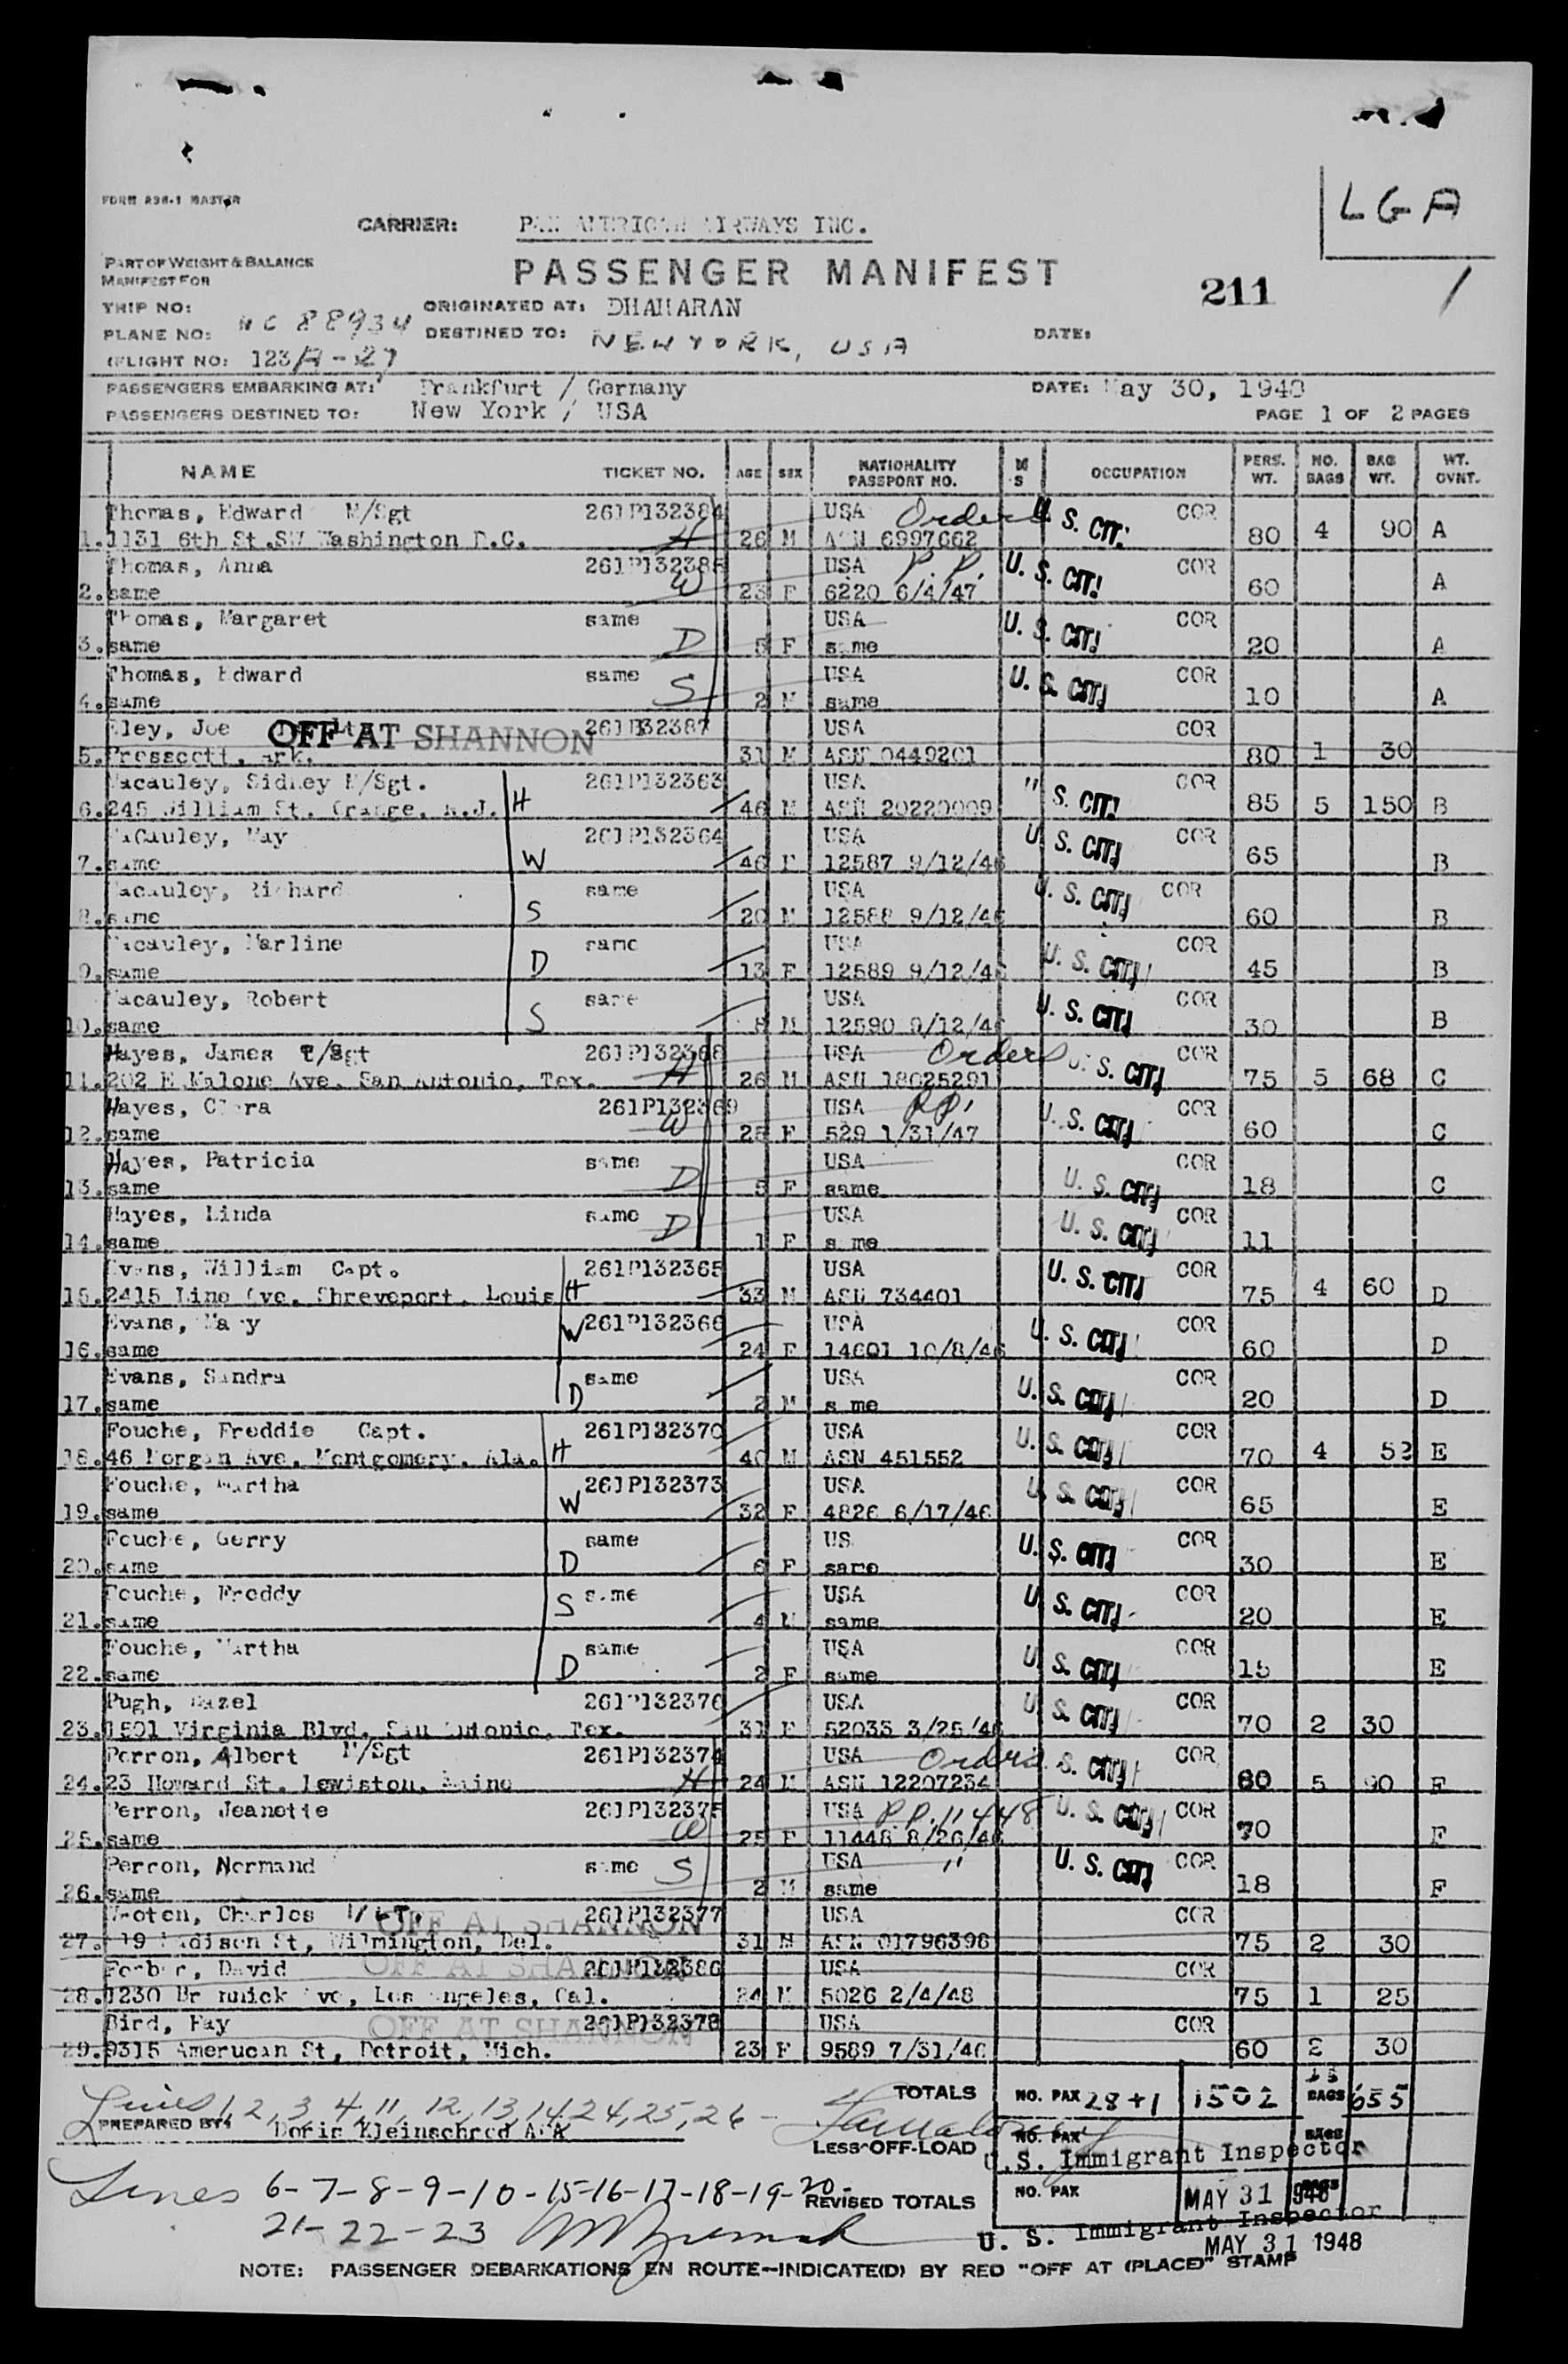 FORM 236-1 MASTER
LGA
CARRIER: PAN AMERICAN AIRWAYS INC.
PART OF WEIGHT & BALANCE
MANIFEST FOR
PASSENGER MANIFEST
211
1
TRIP NO:
ORIGINATED AT: DHAHARAN
PLANE NO: NC 88934
DESTINED TO: NEW YORK, USA
DATE:
(FLIGHT NO: 123/A-27
PASSENGERS EMBARKING AT: Frankfurt / Germany
DATE: May 30, 1948
PASSENGERS DESTINED TO: New York / USA
PAGE 1 OF 2 PAGES
NAME TICKET NO. AGE SEX NATIONALITY PASSPORT NO. M S OCCUPATION PERS. WT. NO. BAGS BAG WT. WT. GVNT.
Thomas, Edward M/Sgt 261P132384 USA Orders U. S. CIT. COR
1. 1131 6th St.SW Washington D.C. H 26 M ASN 6997662 80 4 90 A
Thomas, Anna 261P132385 USA P.P. U. S. CIT. COR
2. same W 23 F 6220 6/4/47 60 A
Thomas, Margaret same USA U. S. CIT. COR
3. same D 5 F same 20 A
Thomas, Edward same USA U. S. CIT. COR
4. same S 2 M same 10 A
Eley, Joe OFF AT SHANNON 261P132387 USA COR
5. Presscott, Ark. 31 M ASN 0449201 80 1 30
Macauley, Sidney M/Sgt. 261P132363 USA U. S. CIT. COR
6. 245 William St. Orange, N.J. H 46 M ASN 20220009 85 5 150 B
MaCauley, May 261P132364 USA U. S. CIT. COR
7. same W 46 F 12587 9/12/46 65 B
Macauley, Richard same USA U. S. CIT. COR
8. same S 20 M 12588 9/12/46 60 B
Macauley, Marline same USA U. S. CIT. COR
9. same D 13 F 12589 9/12/46 45 B
Macauley, Robert same USA U. S. CIT. COR
10. same S 8 M 12590 9/12/46 30 B
Hayes, James T/Sgt 261P132368 USA Orders U. S. CIT. COR
11. 202 E.Malone Ave. San Antonio, Tex. H 26 M ASN 18025291 75 5 68 C
Hayes, Clara 261P132369 USA P.P. U. S. CIT. COR
12. same W 25 F 529 1/31/47 60 C
Hayes, Patricia same USA COR
13. same D 5 F same U. S. CIT. 18 C
Hayes, Linda same USA U. S. CIT. COR
14. same D 1 F same 11
Evans, William Capt. 261P132365 USA U. S. CIT. COR
15. 2415 Line Ave. Shreveport, Louis H 33 M ASN 734401 75 4 60 D
Evans, Mary W 261P132366 USA U. S. CIT. COR
16. same 24 F 14601 10/8/46 60 D
Evans, Sandra same USA U. S. CIT. COR
17. same D 2 M same 20 D
Fouche, Freddie Capt. 261P132370 USA U. S. CIT. COR
18. 46 Morgan Ave. Montgomery, Ala. H 40 M ASN 451552 70 4 52 E
Fouche, Martha 261P132373 USA U. S. CIT. COR
19. same W 32 F 4826 6/17/46 65 E
Fouche, Gerry same US U. S. CIT. COR
20. same D 6 F same 30 E
Fouche, Freddy S same USA U. S. CIT. COR
21. same 4 M same 20 E
Fouche, Martha same USA U. S. CIT. COR
22. same D 2 F same 15 E
Pugh, Hazel 261P132376 USA U. S. CIT. COR
23. 1501 Virginia Blvd. San Antonio, Tex. 31 F 52033 3/25/46 70 2 30
Perron, Albert M/Sgt 261P132374 USA Orders S. CIT. COR
24. 23 Howard St. Lewiston, Maine H 24 M ASN 12207234 80 5 90 F
Perron, Jeanette 261P132375 USA P.P. 11448 U. S. CIT. COR
25. same W 25 F 11448 8/26/46 70 F
Perron, Normand same S USA " U. S. CIT. COR
26. same 2 M same 18 F
Wroten, Charles OFF AT SHANNON 261P132377 USA COR
27. 19 Madison St, Wilmington, Del. 31 M ASN 01796398 75 2 30
David OFF AT SHANNON 261P132386 USA COR
28. 1230 Ave, Los Angeles, Cal. 24 M 5026 2/4/48 75 1 25
Bird, Fay OFF AT SHANNON 261P132378 USA COR
29. 9315 Amerucan St, Detroit, Mich. 23 F 9589 7/31/46 60 2 30
TOTALS NO. PAX 28+1 1502 BAGS 655
Lines 1, 2, 3, 4, 11, 12, 13, 14, 24, 25, 26 -
PREPARED BY: Doris Kleinschrod
LESS OFF-LOAD NO. PAX BAGS
U.S. Immigrant Inspector
Lines 6-7-8-9-10-15-16-17-18-19-20-
REVISED TOTALS NO. PAX BAGS
MAY 31 1948
21-22-23
U. S. Immigrant Inspector
MAY 31 1948
NOTE: PASSENGER DEBARKATIONS EN ROUTE-INDICATE(D) BY RED "OFF AT (PLACE)" STAMP